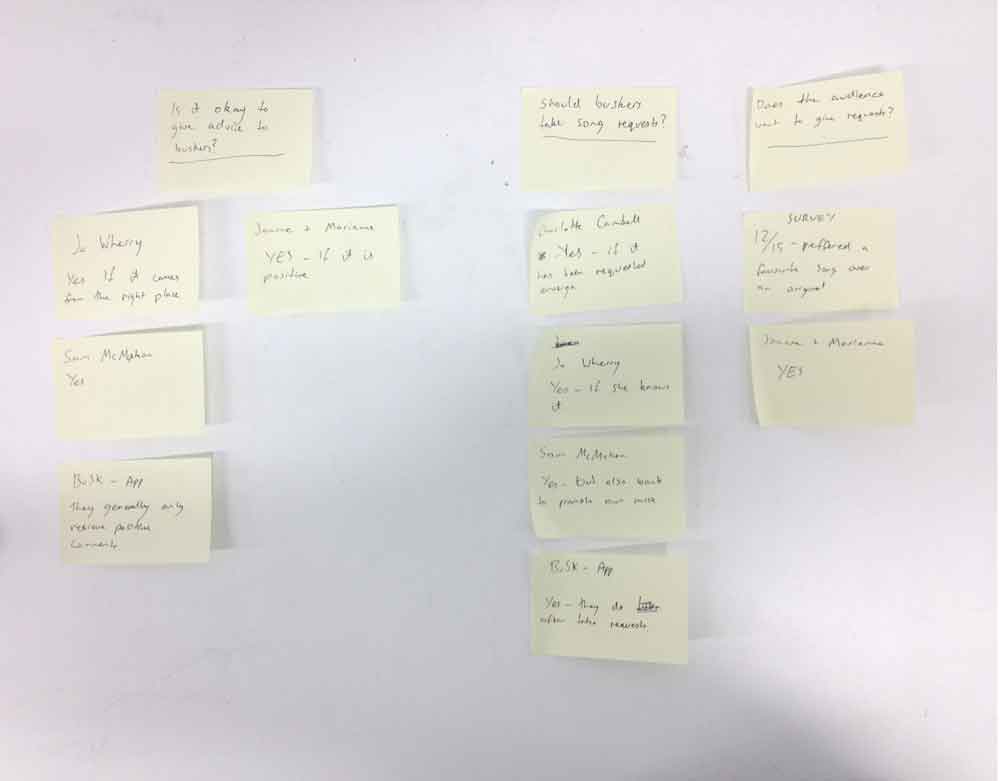 Is it okay to
give advice to
buskers?
Jo Wherry
Yes If it comes
from the right place
Sam McMahon
Yes
BUSK - App
They generally only
recieve positive
comments
Joanne + Marianne
YES - If it is
positive
Should buskers
take song requests?
Charlotte Cambell
Yes - if it
has been requested
enough
Jo Wherry
Yes - if she knows
it
Sam McMahon
Yes - but also want
to promote own music
BUSK - App
Yes - they do
often take requests.
Does the audience
want to give requests?
SURVEY
12/15 - preffered a
favourite song over
an original
Joanne + Marianne
YES